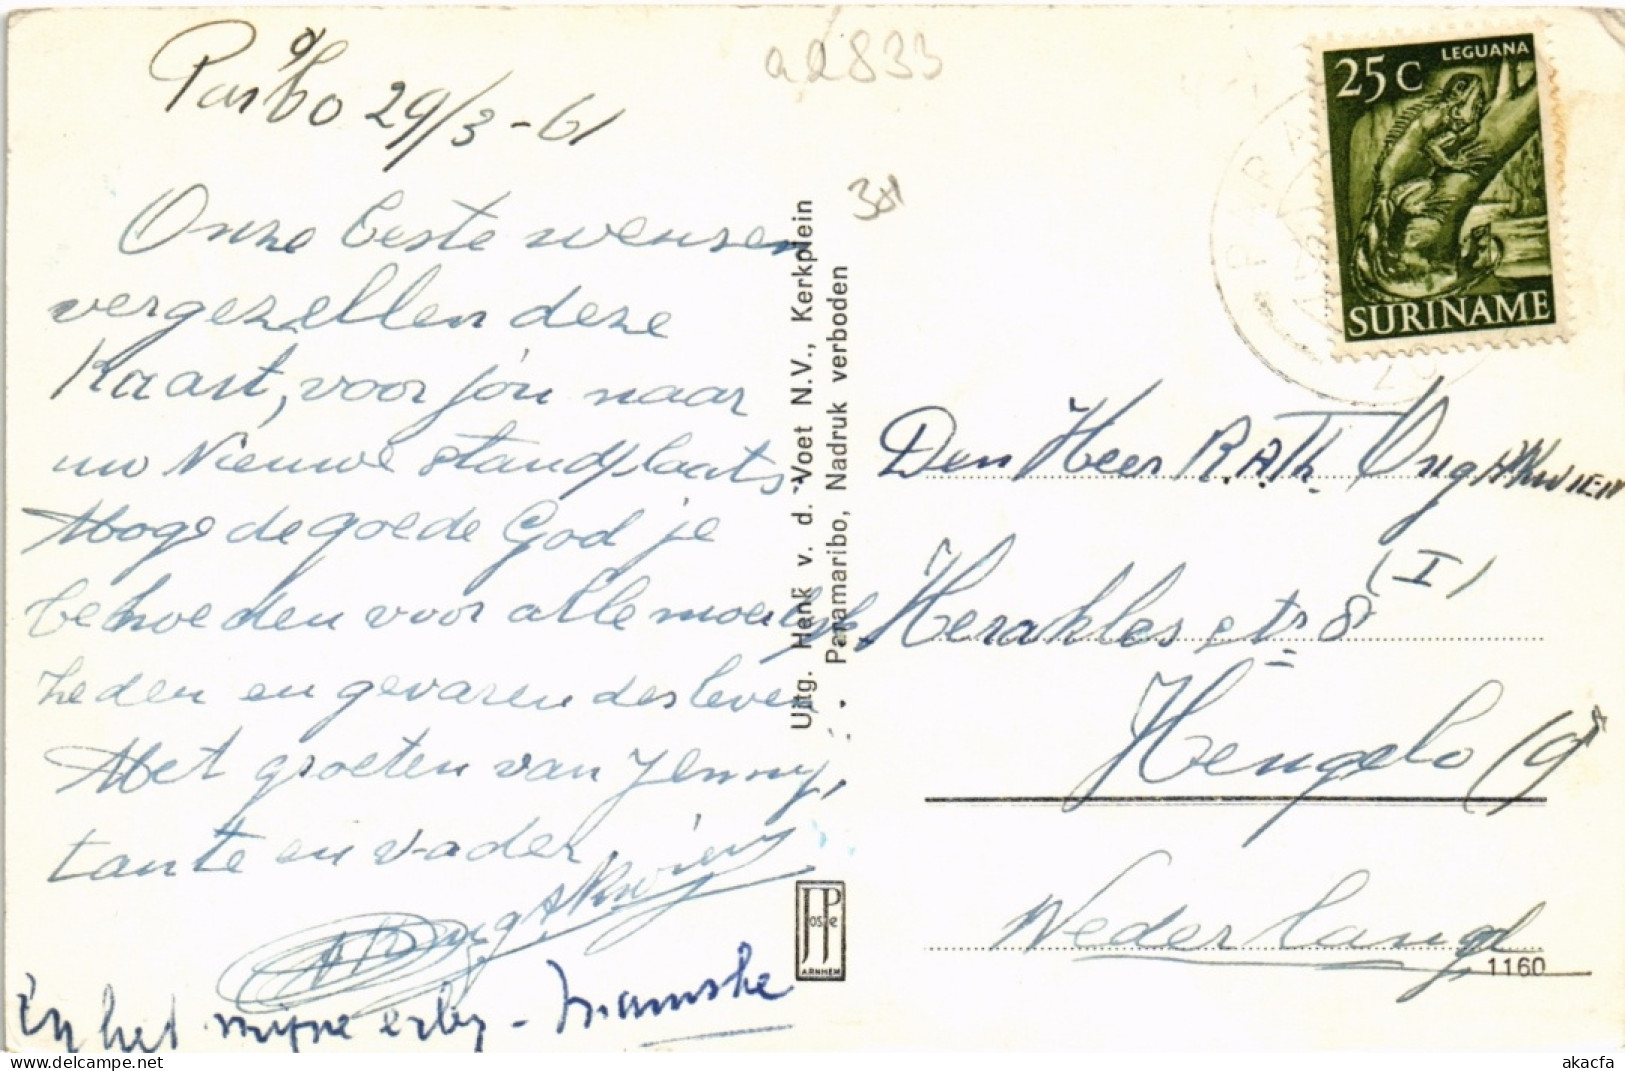 a2833
Par'bo 29/3-61
Onze beste wensen
vergezellen deze
Kaart, voor jou naar
uw Nieuwe standplaats.
Moge de goede God je
behoeden voor alle moeilijk
heden en gevaren des leven
Met groeten van Jenny,
tante en vader.
En het mijne erbij - Mamske
Uitg. Henk v. d. Voet N.V., Kerkplein
Paramaribo, Nadruk verboden
JosPe
ARNHEM
LEGUANA
25 C
SURINAME
PARA
Den Heer R.A.Th. Ong
Heraklesstr 8 (I)
Hengelo (O)
Nederland
1160
akacfa